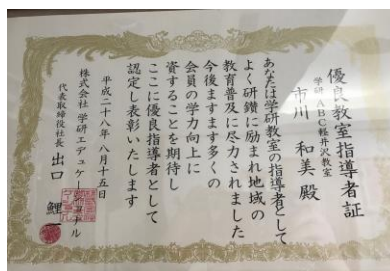 優良教室指導者証
学研ABC軽井沢教室
市川 和美 殿
あなたは学研教室の指導者として
よく研鑽に励まれ地域の
教育普及に尽力されました
今後ますます多くの
会員の学力向上に
資することを期待し
ここに優良指導者として
認定し表彰いたします
平成二十八年八月十五日
株式会社 学研エデュケーショナル
代表取締役社長 出口 鯉一